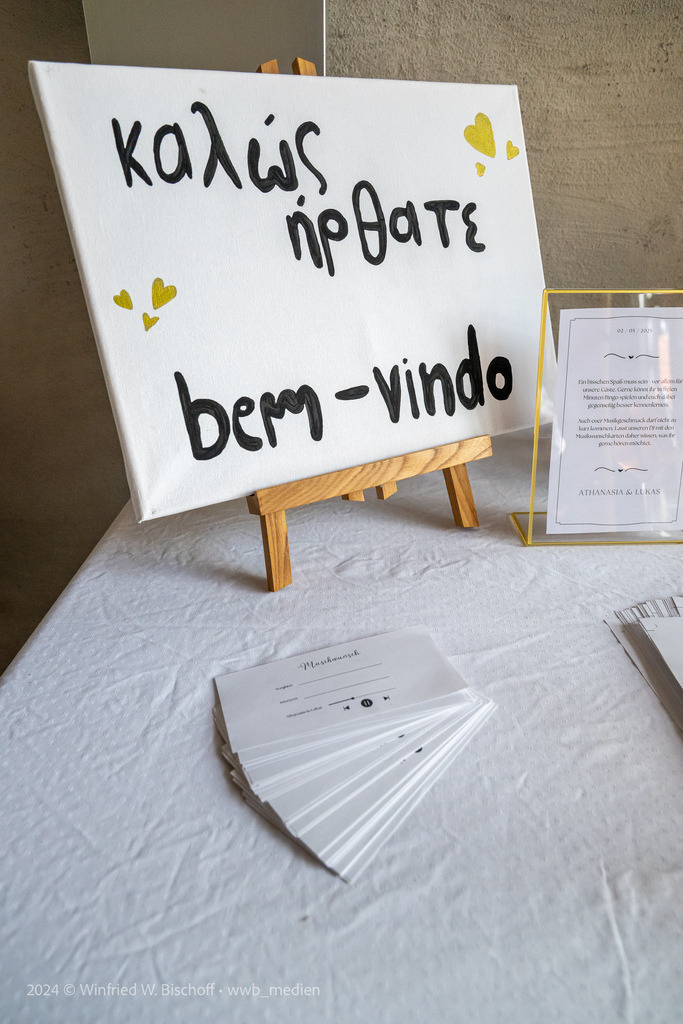 καλώς
ήρθατε
bem-vindo
02 / 08 / 2025
Ein bisschen Spaß muss sein - vor allem für
unsere Gäste. Gerne könnt ihr in freien
Minuten Bingo spielen und euch dabei
gegenseitig besser kennenlernen.
Auch euer Musikgeschmack darf nicht zu
kurz kommen: Lasst unseren DJ mit den
Musikwunschkarten daher wissen, was ihr
gerne hören möchtet.
ATHANASIA & LUKAS
Musikwunsch
Songtitel:
Interpret:
Athanasia & Lukas
2024 © Winfried W. Bischoff • wwb_medien